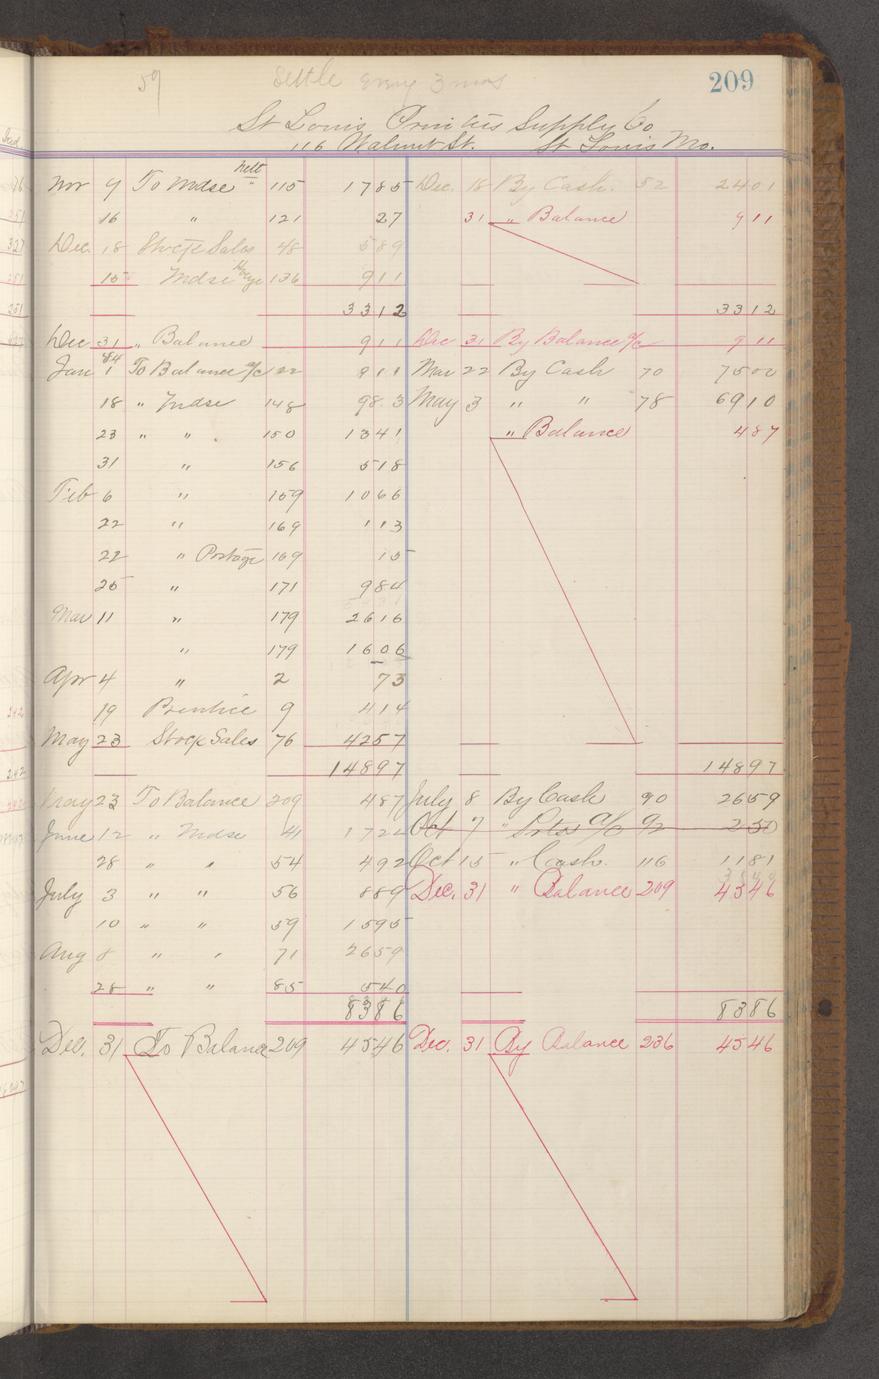 59 Settle every 3 mos 209
St Louis Printers Supply Co
116 Walnut St. St Louis Mo.
Nov 9 To Mdse nett 115 1785 Dec. 18 By Cash. 52 2401
16 " 121 27 31 " Balance 911
Dec. 18 Stock Sales 48 589
15 Mdse 136 911
3312 3312
Dec 31 " Balance 911 Dec 31 By Balance a/c 911
Jan 84 1 To Balance a/c 22 911 Mar 22 By Cash 70 7500
18 " Mdse 148 983 May 3 " " 78 6910
23 " " 150 1341 " Balance 487
31 " 156 518
Feb 6 " 159 1066
22 " 169 113
22 " Postage 169 15
25 " 171 984
Mar 11 " 179 2616
" 179 1606
Apr 4 " 2 73
19 Prentice 9 414
May 23 Stock Sales 76 4257
14897 14897
May 23 To Balance 209 487 July 8 By Cash 90 2659
June 12 " Mdse 41 1722 Oct 7 " a/c 92 230
28 " " 54 492 Oct 15 " Cash. 116 1181
July 3 " " 56 889 Dec. 31 " Balance 209 4546
10 " " 59 1595
Aug 8 " " 71 2659
28 " " 85 540
8386 8386
Dec. 31 To Balance 209 4546 Dec. 31 By Balance 236 4546